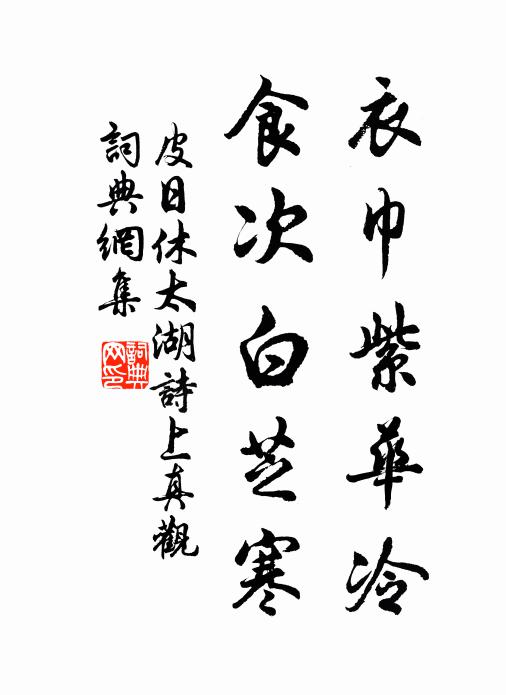 衣巾紫華冷
食次白芝寒
皮日休太湖詩上真觀
詞典網集
詞典
网印